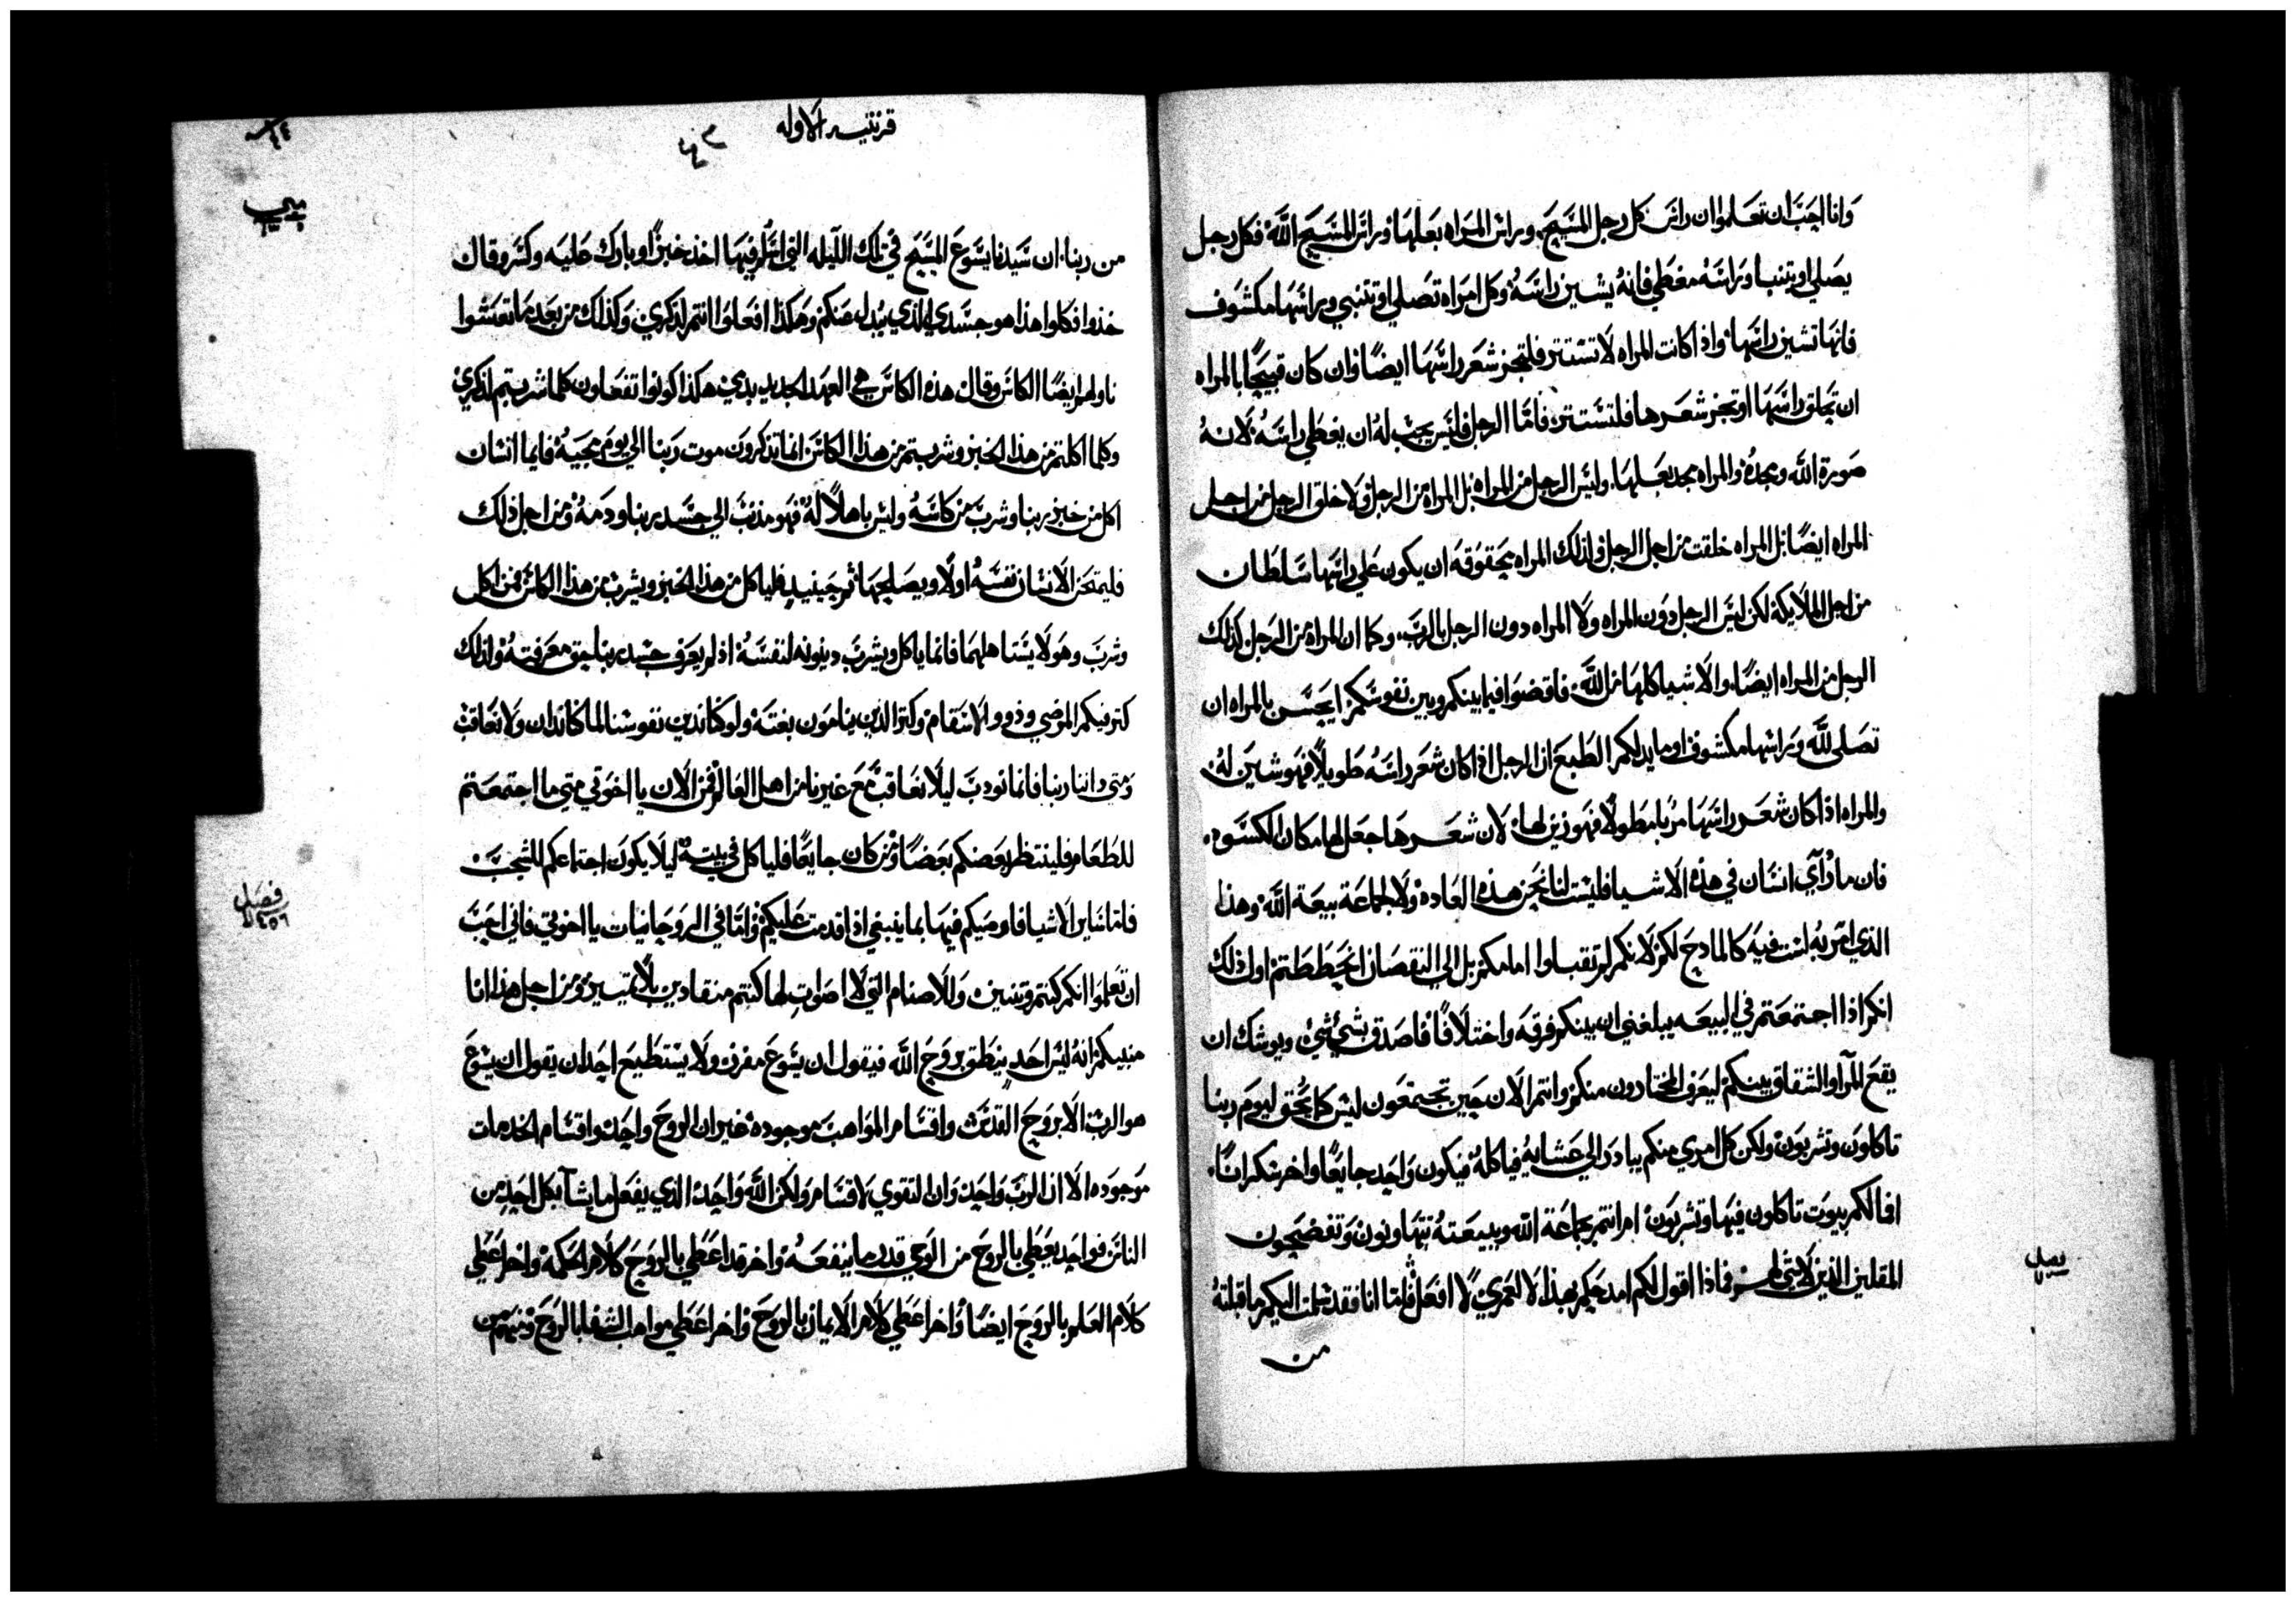 وانا احب ان تعلموا ان راس كل رجل المسيح وراس المراه بعلها وراس المسيح الله فكل رجل
يصلي او يتنبا وراسه مغطي فانه يشين راسه وكل امراه تصلي او تتنبي وراسها مكشوف
فانها تشين راسها واذا كانت المراه لا تستتر فلتجز شعر راسها ايضًا وان كان قبيحًا بالمراه
ان تحلق راسها او تجز شعرها فلتستتر فاما الرجل فليس يجب له ان يغطي راسه لانه
صورة الله ومجده والمراه مجد بعلها وليس الرجل من المراه بل المراه من الرجل ولا خلق الرجل من اجل
المراه ايضًا بل المراه خلقت من اجل الرجل ولذلك المراه محقوقه ان يكون علي راسها سلطان
من اجل الملايكة لكن ليس الرجل دون المراه ولا المراه دون الرجل بالرب وكما ان المراه من الرجل كذلك
الرجل من المراه ايضًا والاشيا كلها من الله فاقضوا فيما بينكم وبين نفوسكم ايحسن بالمراه ان
تصلي لله وراسها مكشوف او ما يدلكم الطبع ان الرجل اذا كان شعر راسه طويلًا فهو شين له
والمراه اذا كان شعر راسها مربا مطولًا فهو زين لها لان شعرها جعل لها مكان الكسوه
فان مارآي انسان في هذه الاشيا فليست لنا نحن هذه العاده ولا لجماعة بيعة الله وهذا
الذي امر به لست فيه كالمادح لكم لانكم لم تقبلوا امامكم بل الي النقصان انحططتم اول ذلك
انكم اذا اجتمعتم في البيعه يبلغني ان بينكم فرقه واختلافًا فاصدق بشي شي ويوشك ان
يقع المرآ والشقاق بينكم ليعرف المختارون منكم وانتم الان حين تجتمعون ليس كما يحق ليوم ربنا
تاكلون وتشربون ولكن كل امري منكم يبادر الي عشايه فياكله فيكون واحد جايعًا واخر سكرانًا
افما لكم بيوت تاكلون فيها وتشربون ام انتم بجماعة الله وبيعته تتهاونون وتفضحون
المقلين الذين لا شي لهم فماذا اقول لكم امدحكم بهذا لا لعمري لا افعل فاما انا فقد سلمت اليكم ما قبلته
من
قرنتيه الاوله
من ربنا ان سيدنا يسوع المسيح في تلك الليله التي اسلم فيها اخذ خبزًا وبارك عليه وكسر وقال
خذوا فكلوا هذا هو جسدي الذي يبدل عنكم وهكذا افعلوا انتم لذكري وكذلك من بعد ما تعشوا
ناولهم ايضًا الكاس وقال هذه الكاس هي العهد الجديد بدمي هكذا كونوا تفعلون كلما شربتم لذكري
وكلما اكلتم من هذا الخبز وشربتم من هذا الكاس انما تذكرون موت ربنا الي يوم مجيه فايما انسان
اكل من خبز ربنا وشرب من كاسه وليس باهلًا له فهو مذنب الي جسد ربنا ودمه ومن اجل ذلك
فليمتحن الانسان نفسه اولًا ويصلحها ثم حينيدٍ فلياكل من هذا الخبز ويشرب من هذا الكاس فمن اكل
وشرب وهو لا يستاهلهما فانما ياكل ويشرب دينونه لنفسه اذ لم يعرف جسد ربنا حق معرفته ولذلك
كثر فيكم المرضي وذووا الاسقام وكثر الذين ينامون بغتة ولو كنا ندين نفوسنا لما كنا ندان ولا نعاقب
ومتي داننا ربنا فانما نودب ليلا نعاقب مع غيرنا من اهل العالم فمن الان يا اخوتي متي ما اجتمعتم
للطعام فلينتظر بعضكم بعضًا ومن كان جايعًا فلياكل في بيته ليلا يكون اجتماعكم للشجب
فاما ساير الاشيا فاوصيكم فيها بما ينبغي اذا قدمت عليكم واما في الروحانيات يا اخوتي فاني احب
ان تعلموا انكم كنتم وثنيين وللاصنام التي لا اصوات لها كنتم منقادين بلا تمييز ومن اجل هذا انا
منبيكم انه ليس احد ينطق بروح الله فيقول ان يسوع مفرز ولا يستطيع احد ان يقول ان يسوع
هو الرب الا بروح القدس واقسام المواهب موجوده غير ان الروح واحد واقسام الخدمات
موجوده الا ان الرب واحد وان القوي لاقسام ولكن الله واحد الذي يفعل ما يشآ بكل احد من
الناس فواحد يعطي بالروح من الوحي قدر ما ينفعه واخر قد اعطي بالروح كلام الحكمه واخر اعطي
كلام العلم بالروح ايضًا واخر اعطي كلام الايمان بالروح واخر اعطي مواهب الشفا بالروح ومنهم من
فصل